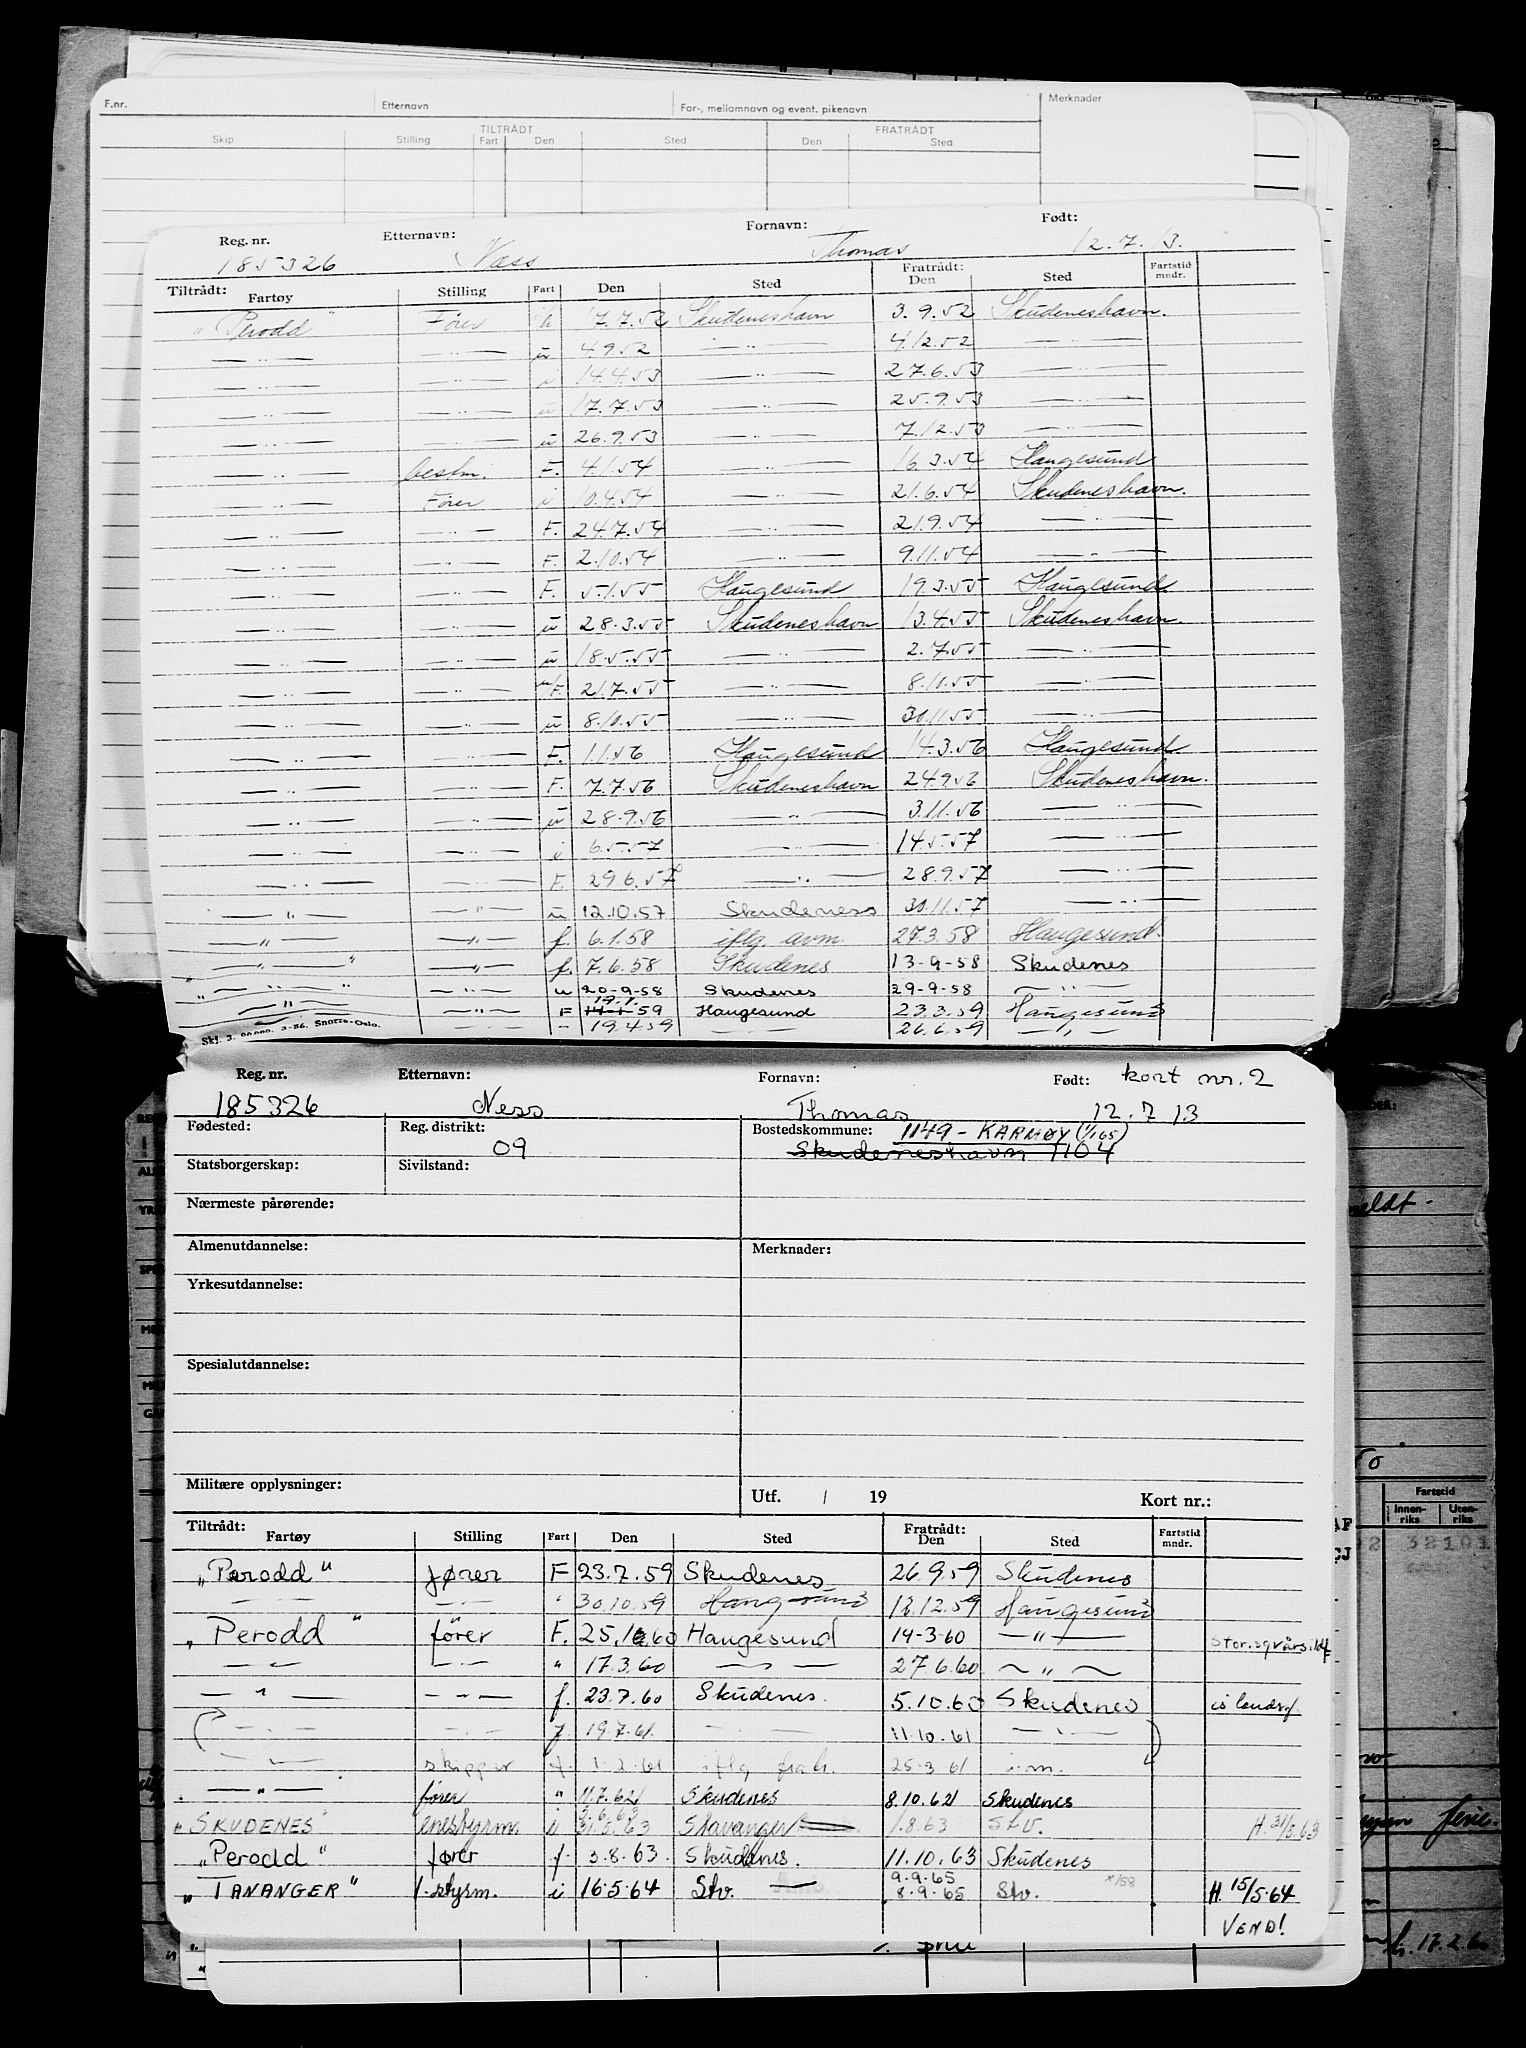 F.nr. Etternavn For-, mellomnavn og event. pikenavn Merknader
TILTRÅDT FRATRÅDT
Skip Stilling Fart Den Sted Den Sted
Reg. nr. Etternavn: Fornavn: Født:
185326 Næss Thomas 12.7.13.
Tiltrådt: Fratrådt:
Fartøy Stilling Fart Den Sted Den Sted Fartstid mndr.
"Perodd" Fører 17.7.52 Skudeneshavn 3.9.52 Skudeneshavn.
— " — — " — u 4.9.52 — " — 4.12.52 — " —
— " — — " — i 14.4.53 — " — 27.6.53 — " —
— " — — " — u 17.7.53 — " — 25.9.53 — " —
— " — — " — u 26.9.53 — " — 7.12.53 — " —
— " — bestm. F. 4.1.54 — " — 16.3.54 Haugesund
— " — Fører i 10.4.54 — " — 21.6.54 Skudeneshavn.
— " — — " — F. 24.7.54 — " — 21.9.54 — " —
— " — — " — F. 2.10.54 — " — 9.11.54 — " —
— " — — " — F. 5.1.55 Haugesund 19.3.55 Haugesund
— " — — " — u 28.3.55 Skudeneshavn 13.4.55 Skudeneshavn.
— " — — " — u 18.5.55 — " — 2.7.55 — " —
— " — — " — u/F. 21.7.55 — " — 8.10.55 — " —
— " — — " — u 8.10.55 — " — 30.11.55 — " —
— " — — " — F. 1.1.56 Haugesund 14.3.56 Haugesund
— " — — " — F. 7.7.56 Skudeneshavn 24.9.56 Skudeneshavn.
— " — — " — u 28.9.56 — " — 3.11.56 — " —
— " — — " — i 6.5.57 — " — 14.5.57 — " —
— " — — " — F. 29.6.57 — " — 28.9.57 — " —
— " — — " — u 12.10.57 Skudeness 30.11.57 — " —
— " — — " — f. 6.1.58 iflg. avm. 27.3.58 Haugesund.
— " — — " — f. 7.6.58 Skudenes 13-9-58 Skudenes
— " — — " — u 20-9-58 Skudenes 29-9-58 — " —
— " — — " — F 19.1. 14-1-59 Haugesund 23.3.59 Haugesund
— " — — " — 19.4.59 — — 26.6.59 — " —
Skj. 3. 90.000. 3-56. Snorre-Oslo.
Reg. nr. Etternavn: Fornavn: Født: kort nr. 2
185326 Ness Thomas 12.7.13
Fødested: Reg. distrikt: Bostedskommune: 1149 - KARMØY (1/1 65)
09 Skudeneshavn 1104
Statsborgerskap: Sivilstand:
Nærmeste pårørende:
Almenutdannelse: Merknader:
Yrkesutdannelse:
Spesialutdannelse:
Militære opplysninger:
Utf. / 19 Kort nr.:
Tiltrådt: Fratrådt:
Fartøy Stilling Fart Den Sted Den Sted Fartstid mndr.
"Perodd" fører F 23.7.59 Skudenes 26.9.59 Skudenes
— " — — " — " 30.10.59 Haugesund 12.59 Haugesund
"Perodd" fører F. 60 Haugesund 14-3-60 — " —
— " — — " — " 17.3.60 — " — 27.6.60 — " —
— " — — " — f. 23.7.60 Skudenes. 5.10.60 Skudenes islandsf.
— " — — " — f. 19.7.61. — " — 11.10.61 — " —
— " — skipper f. 1.2.61 iflg frakr. 25.3 61 i.m.
— " — fører " 11.7.62 Skudenes 8.10.62 Skudenes
"SKUDENES" enestyrm. i 3.6.63 31.5.63 Stavanger 1.8.63 Stv. H. 31/5.63
"Perodd" fører f. 3.8.63. Skudenes. 11.10.63 Skudenes
"TANANGER" 1. styrm. i 16.5.64 Stv. 9.9.65 8.9.65 Stv. H. 15/5.64
VEND!
Fartstid
Innen-riks Uten-riks
32101
ferie.
h. 17.2.6